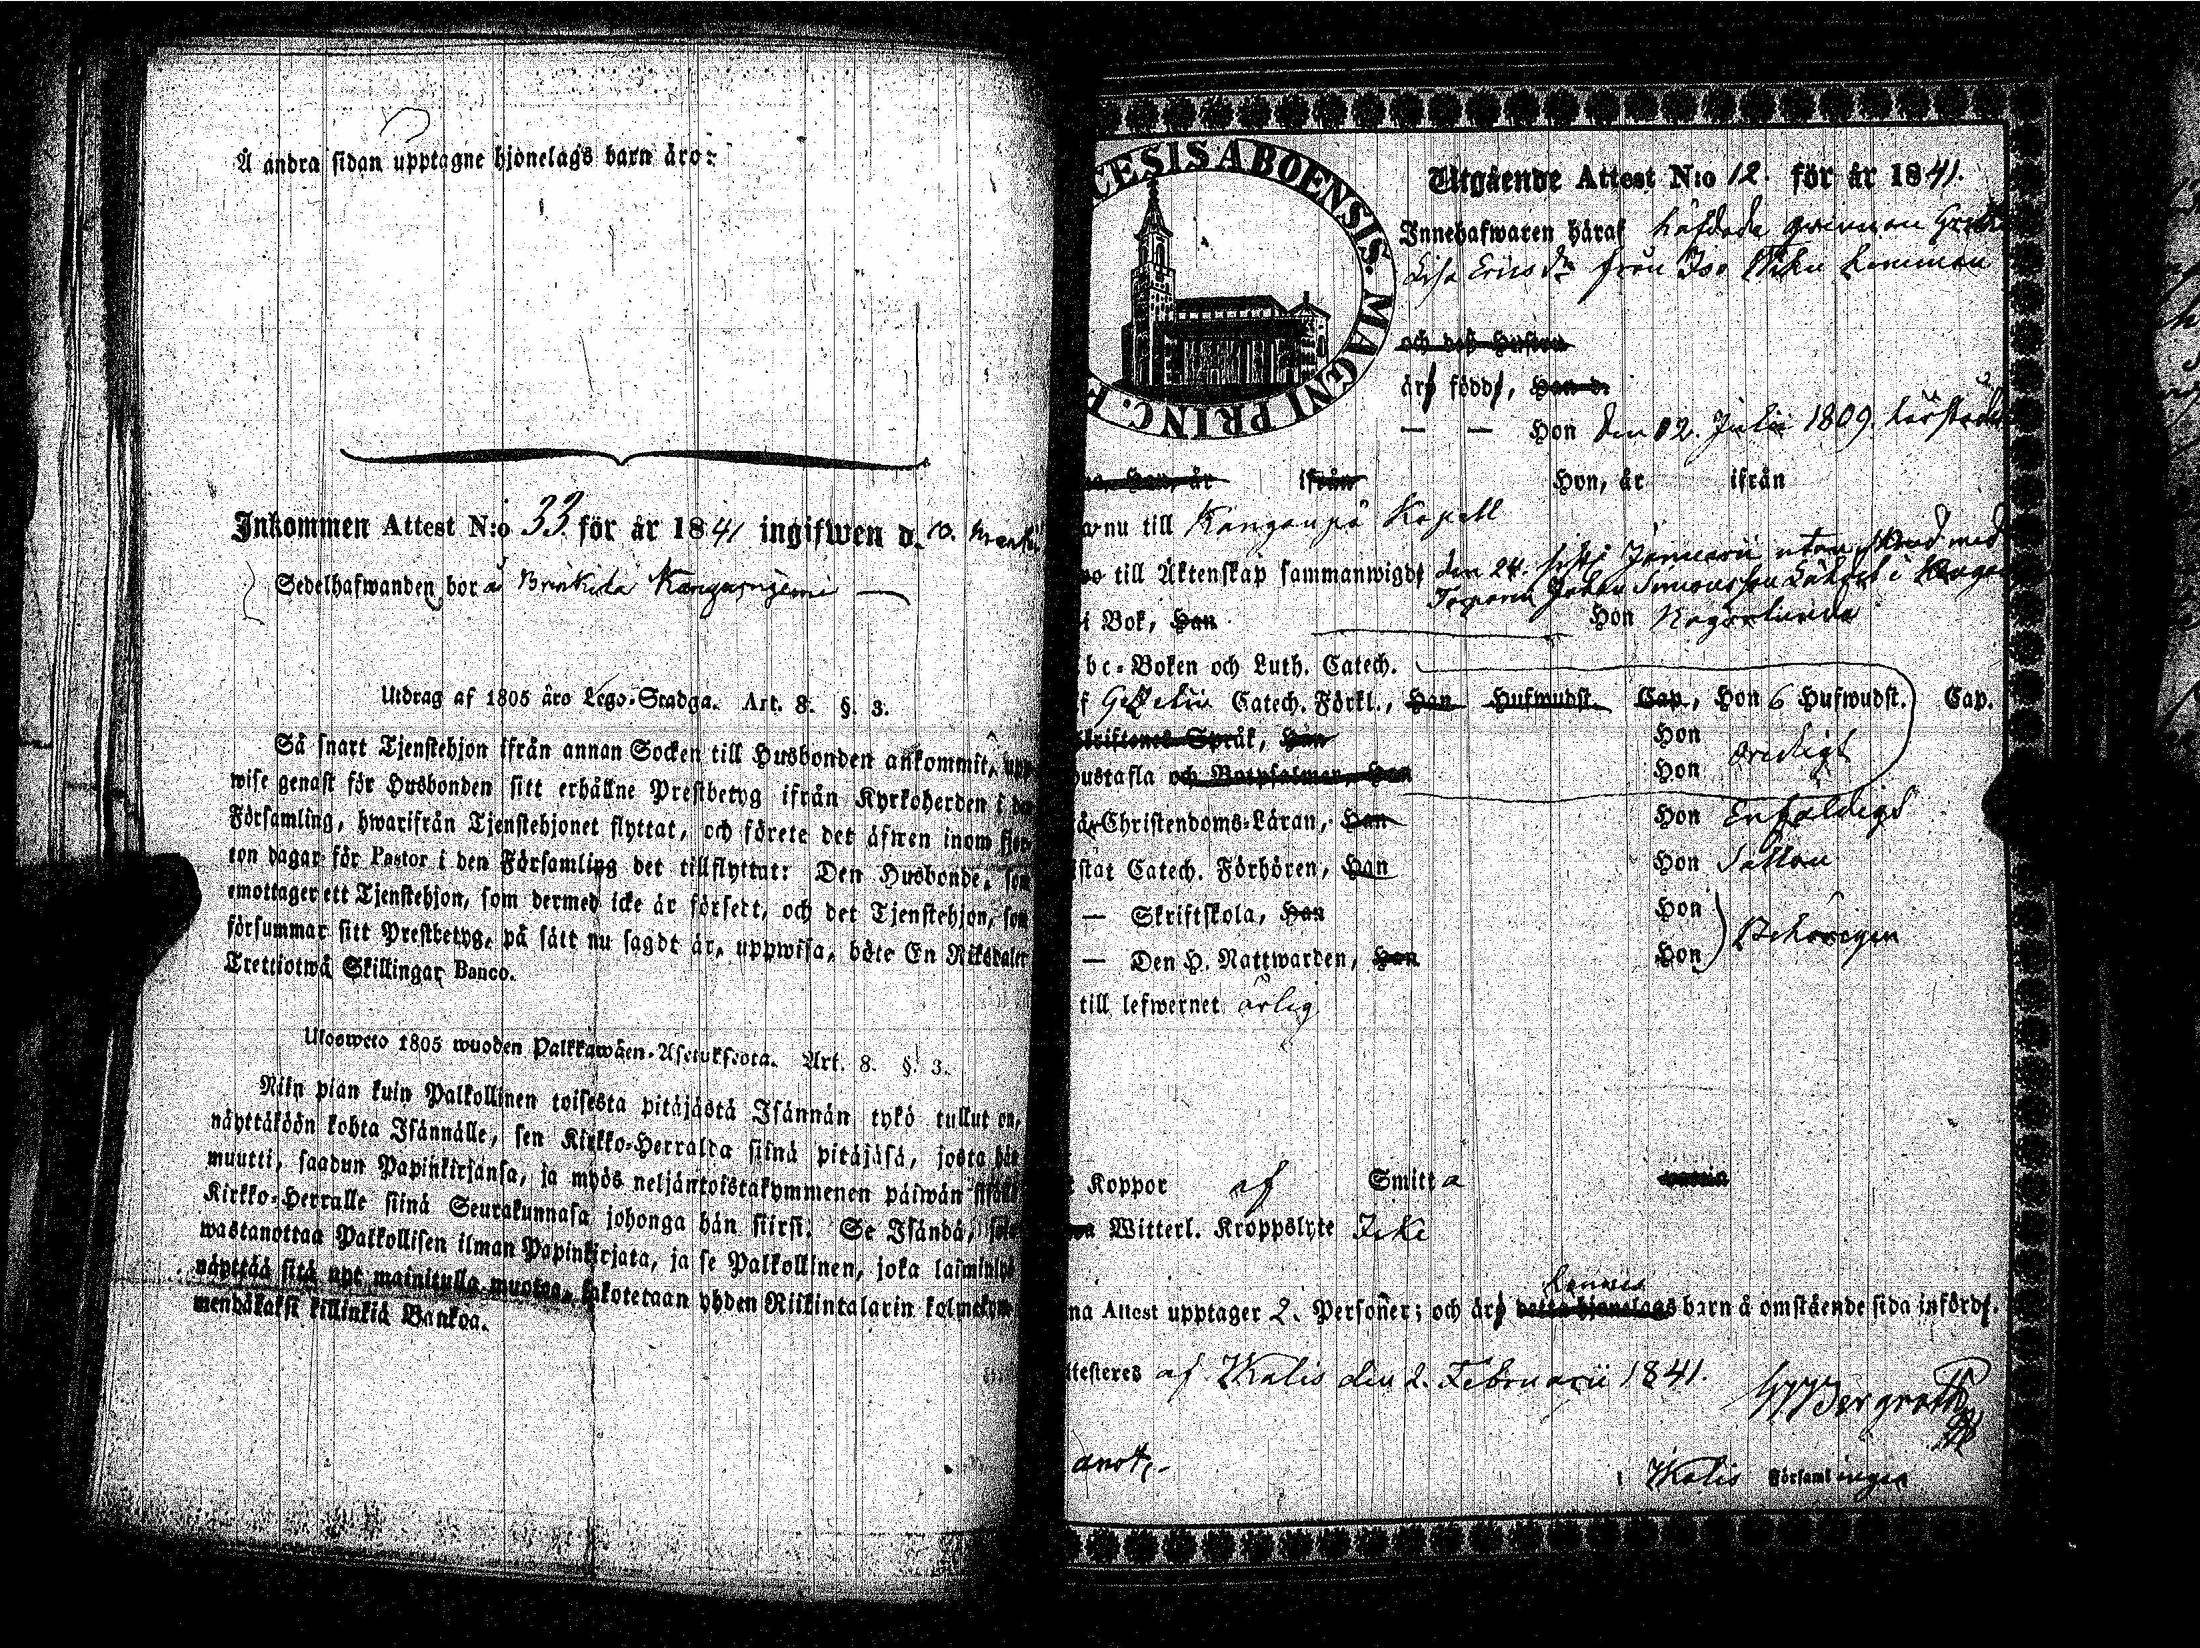 Å andra sidan upptagne hjonelags barn äro:
Inkommen Attest N:o 33 för år 1841 ingifwen d. 10.
Sedelhafwanden bor å Brinkila Kangarniemi
Utdrag af 1805 års Lego-Stadga. Art. 8. §. 3.
Så snart Tjenstehjon ifrån annan Socken till Husbonden ankommit,
wise genast för Husbonden sitt erhållne Prestbetyg ifrån Kyrkoherden i
Församling, hwarifrån Tjenstehjonet flyttat, och förete det äfwen inom
ton dagar för Pastor i den Församling det tillflyttat: Den Husbonde, som
emottager ett Tjenstehjon, som dermed icke är försedt, och det Tjenstehjon, som
försummar sitt Prestbetyg, på sätt nu sagdt är, uppwisa, böte En Riksdaler
Trettiotwå Skillingar Banco.
Ulosweto 1805 wuoden Palkkawäen-Asetuksesta. Art. 8. §. 3.
Niin pian kuin Palkollinen toisesta pitäjästä Isännän tykö tullut on,
näyttäköön kohta Isännälle, sen Kirkko-Herralda siinä pitäjäsä, josta hän
muutti, saadun Papinkirjansa, ja myös neljäntoistakymmenen päiwän
Kirkko-Herralle siinä Seurakunnasa johonga hän siirsi. Se Isändä,
wastanottaa Palkollisen ilman Papinkirjata, ja se Palkollinen, joka
näyttää sitä nyt mainitulla muotoa, sakotetaan yhden Riikintalarin
mendäkaksi killinkiä Bankoa.
CESIS ABOENSIS. MAGNI PRINC. F
Utgående Attest N:o 12. för år 1841.
Innehafwaren häraf häfdade qwinnan Greta
Lisa Ericsdr från Iso
och dess Hustru
är född, Han d.
— — Hon den 12. Julii 1809. härstädes
Han, år ifrån Hon, år ifrån
nu till Kanganpä Kapell
till Äktenskap sammanwigd den 24. sistl. Januarii utan med
Johan Simonsson i
i Bok, Han Hon Någorlunda
bc-Boken och Luth. Catech.
f Catech. Förkl., Han Hufwudst. Cap., Hon 6 Hufwudst. Cap.
Skriftenes Språk, Han Hon
ustafla och Botpsalmer, Han Hon ordeligt
Christendoms-Läran, Han Hon Enfaldigt
istat Catech. Förhören, Han Hon Sällan
— Skriftskola, Han Hon
— Den H. Nattwarden, Han Hon Behörigen
till lefwernet ärlig
Koppor af Smitta
Witterl. Kroppslyte Icke
hennes
na Attest upptager 2. Personer; och är detta hjonelags barn å omstående sida införd.
ttesteres af Walis den 2. Februarii 1841.
Bergroth
Walis Församlingen